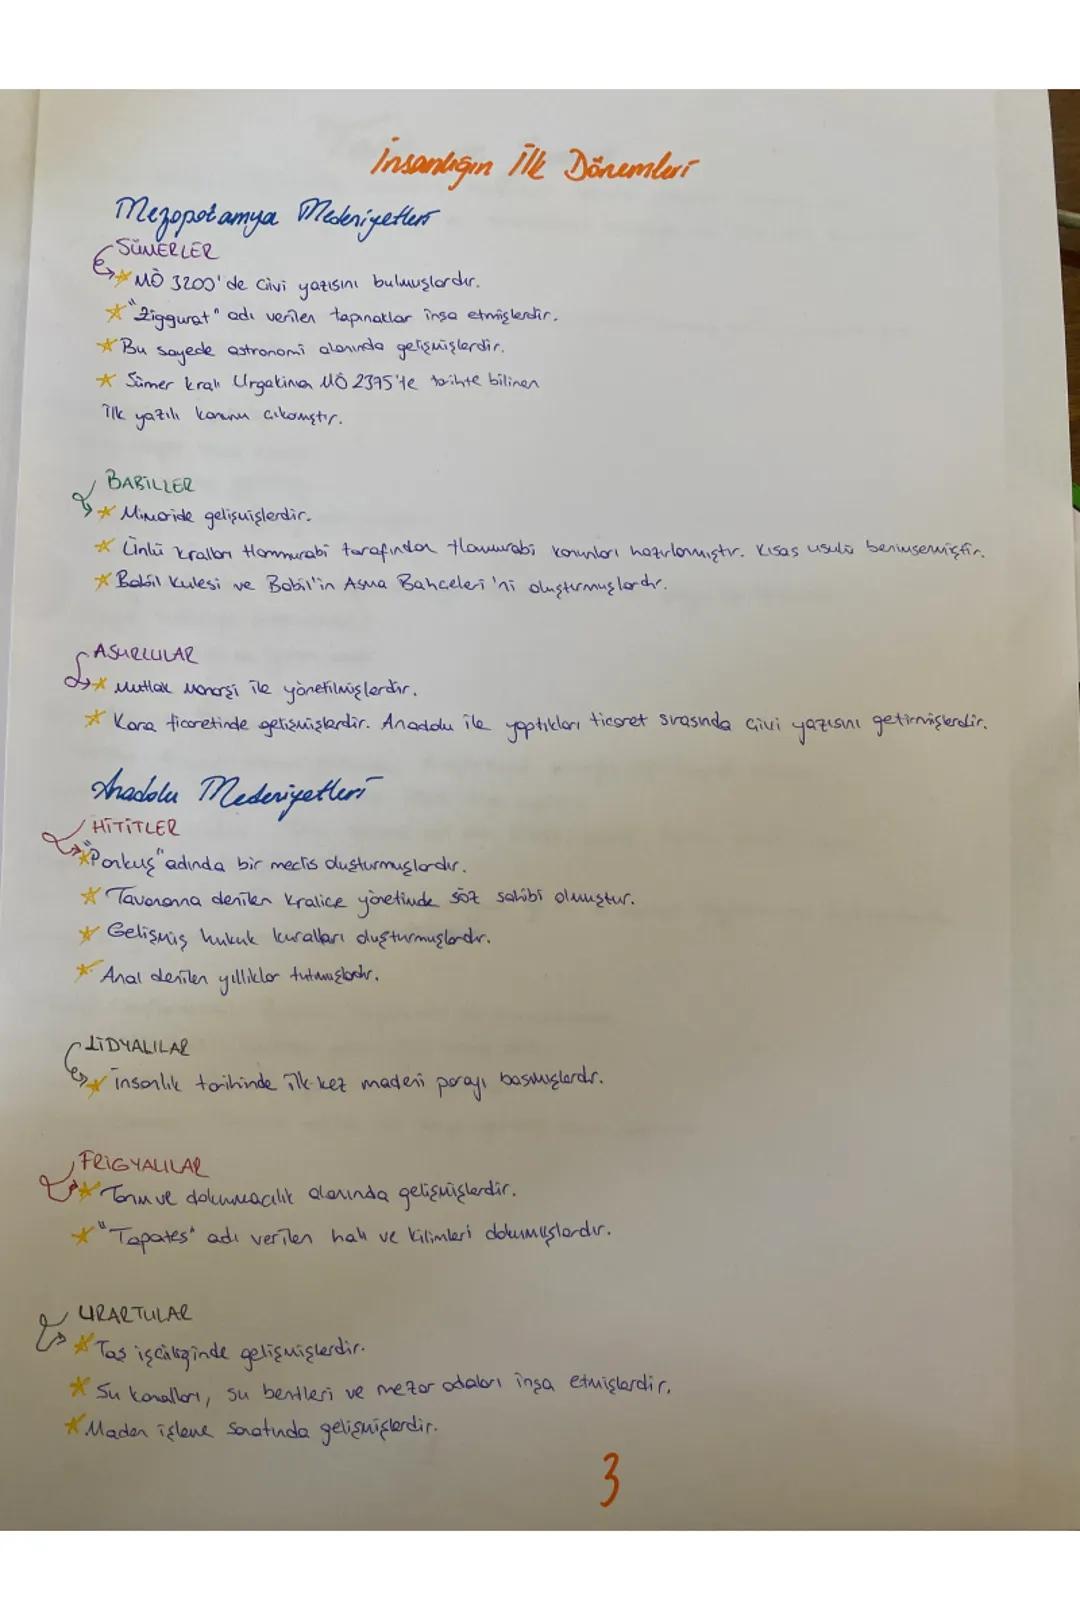 İnsanlığın İlk Dönemleri
Mezopotamya Medeniyetleri
SÜMERLER
MÖ 3200'de Çivi yazısını bulmuşlardır.
"Ziggurat" adı verilen tapınaklar inşa etmişlerdir.
Bu sayede astronomi alanında gelişmişlerdir.
Sümer kralı Urgakina MÖ 2375'te tarihte bilinen
İlk yazılı kanunu çıkarmıştır.
BABİLLER
Mimaride gelişmişlerdir.
Ünlü kralları Hammurabi tarafından Hammurabi kanunları hazırlanmıştır. Kısas usulü benimsemiştir.
Babil Kulesi ve Babil'in Asma Bahçeleri'ni oluşturmuşlardır.
ASURLULAR
Mutlak Monarşi ile yönetilmişlerdir.
Kara ticaretinde gelişmişlerdir. Anadolu ile yaptıkları ticaret sırasında çivi yazısını getirmişlerdir.
Anadolu Medeniyetleri
HİTİTLER
"Pankuş" adında bir meclis oluşturmuşlardır.
Tavananna denilen Kraliçe yönetimde söz sahibi olmuştur.
Gelişmiş hukuk kuralları oluşturmuşlardır.
Anal denilen yıllıklar tutmuşlardır.
LİDYALILAR
İnsanlık tarihinde ilk kez madeni parayı basmışlardır.
FRİGYALILAR
Tarım ve dokumacılık alanında gelişmişlerdir.
"Tapates" adı verilen halı ve kilimleri dokumuşlardır.
URARTULAR
Taş işçiliğinde gelişmişlerdir.
Su kanalları, su bentleri ve mezar odaları inşa etmişlerdir.
Maden işleme sanatında gelişmişlerdir.
3